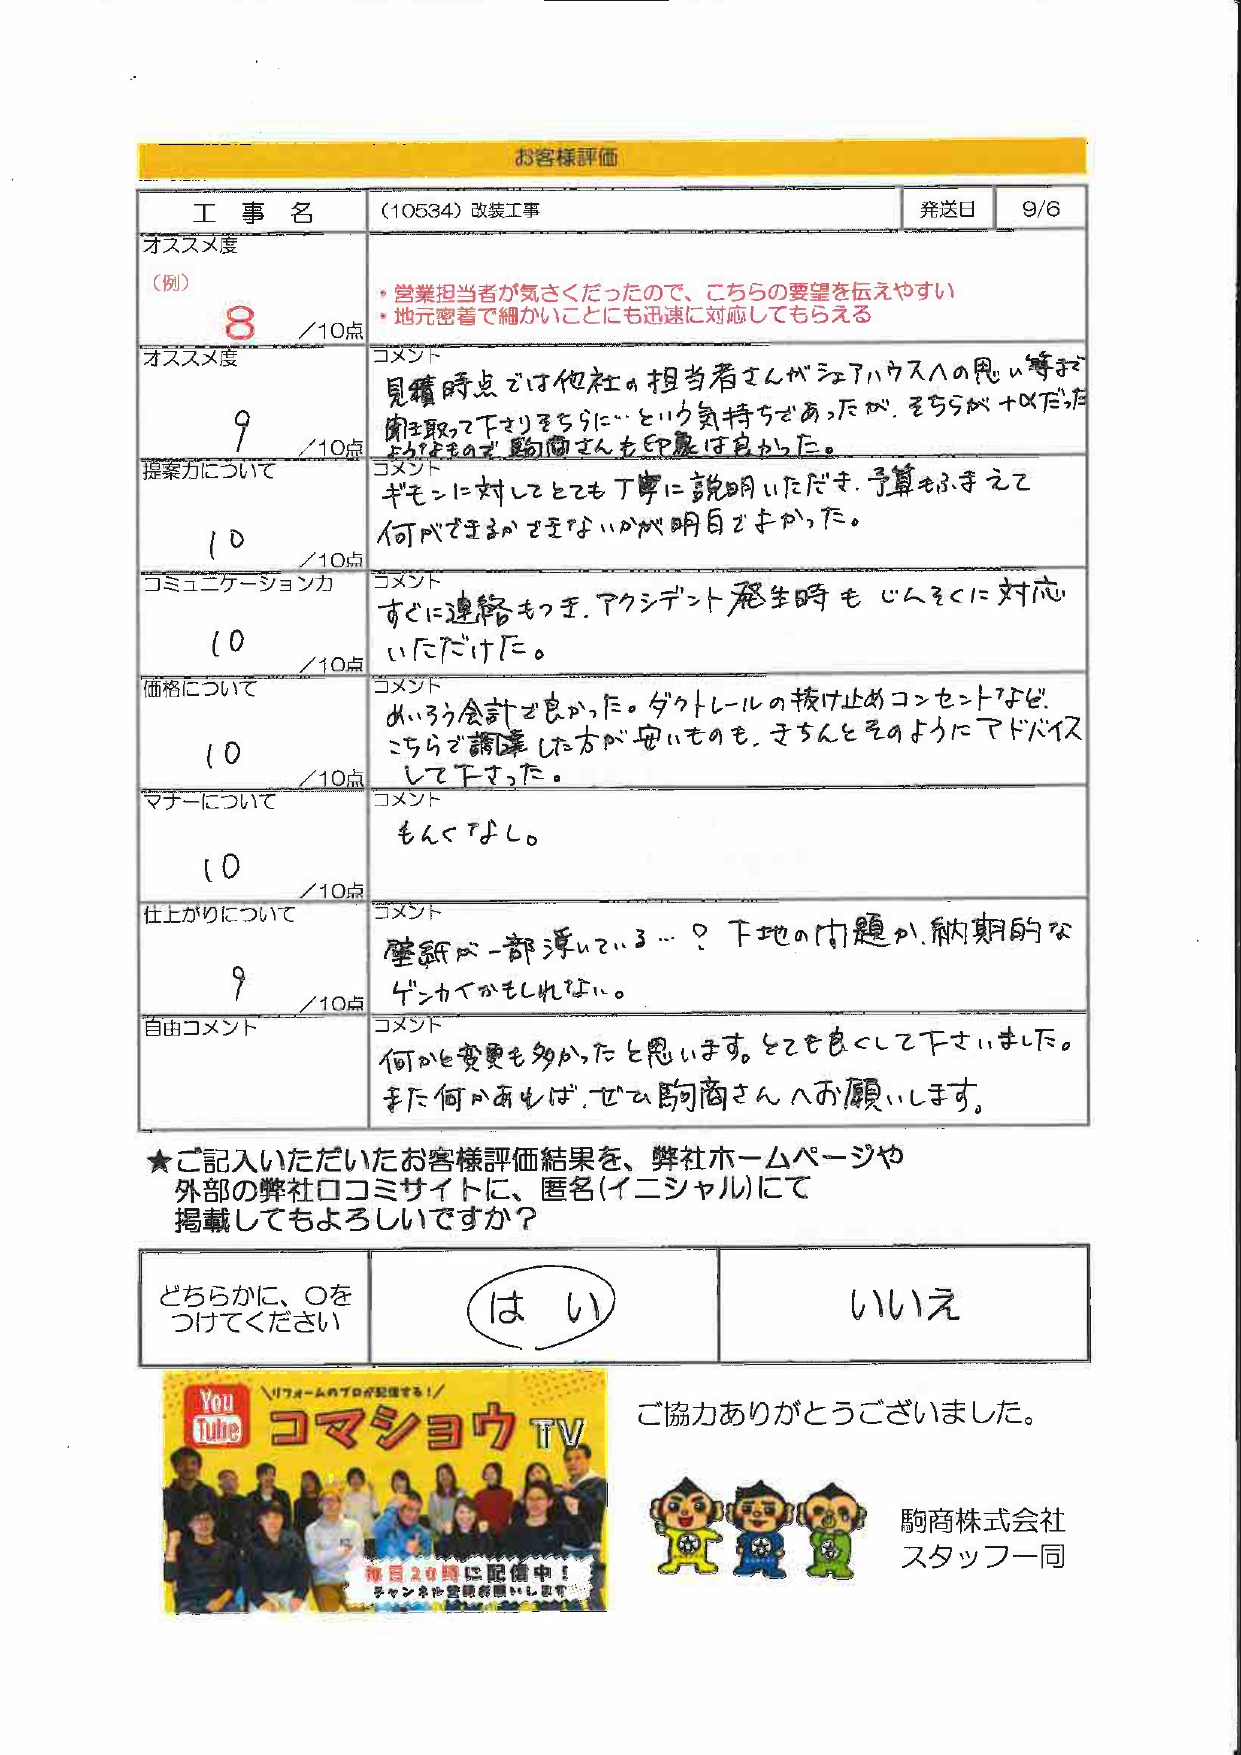 お客様評価
工事名 (10534) 改装工事 発送日 9/6
オススメ度
(例)
8 /10点
・営業担当者が気さくだったので、こちらの要望を伝えやすい
・地元密着で細かいことにも迅速に対応してもらえる
オススメ度
9 /10点
コメント
見積時点では他社の担当者さんがシェアハウスへの思い等まで
聞き取って下さりそちらに…という気持ちであったが、そちらが+αだった
ようなもので駒商さんも印象は良かった。
提案力について
10 /10点
コメント
ギモンに対してとても丁寧に説明いただき、予算もふまえて
何ができるかできないかが明白でよかった。
コミュニケーション力
10 /10点
コメント
すぐに連絡もつき、アクシデント発生時も じんそくに対応
いただけた。
価格について
10 /10点
コメント
めいろう会計で良かった。ダクトレールの抜け止めコンセントなど、
こちらで調達した方が安いものも、きちんとそのようにアドバイス
して下さった。
マナーについて
10 /10点
コメント
もんくなし。
仕上がりについて
9 /10点
コメント
壁紙が一部浮いている…? 下地の問題か、納期的な
ゲンカイかもしれない。
自由コメント
コメント
何かと変更も多かったと思います。とても良くして下さいました。
また何かあれば、ぜひ駒商さんへお願いします。
★ご記入いただいたお客様評価結果を、弊社ホームページや
外部の弊社口コミサイトに、匿名(イニシャル)にて
掲載してもよろしいですか?
どちらかに、○を
つけてください
はい
いいえ
You
Tube
\リフォームのプロが配信する!/
コマショウTV
毎日20時に配信中!
チャンネル登録お願いします
ご協力ありがとうございました。
駒商株式会社
スタッフ一同